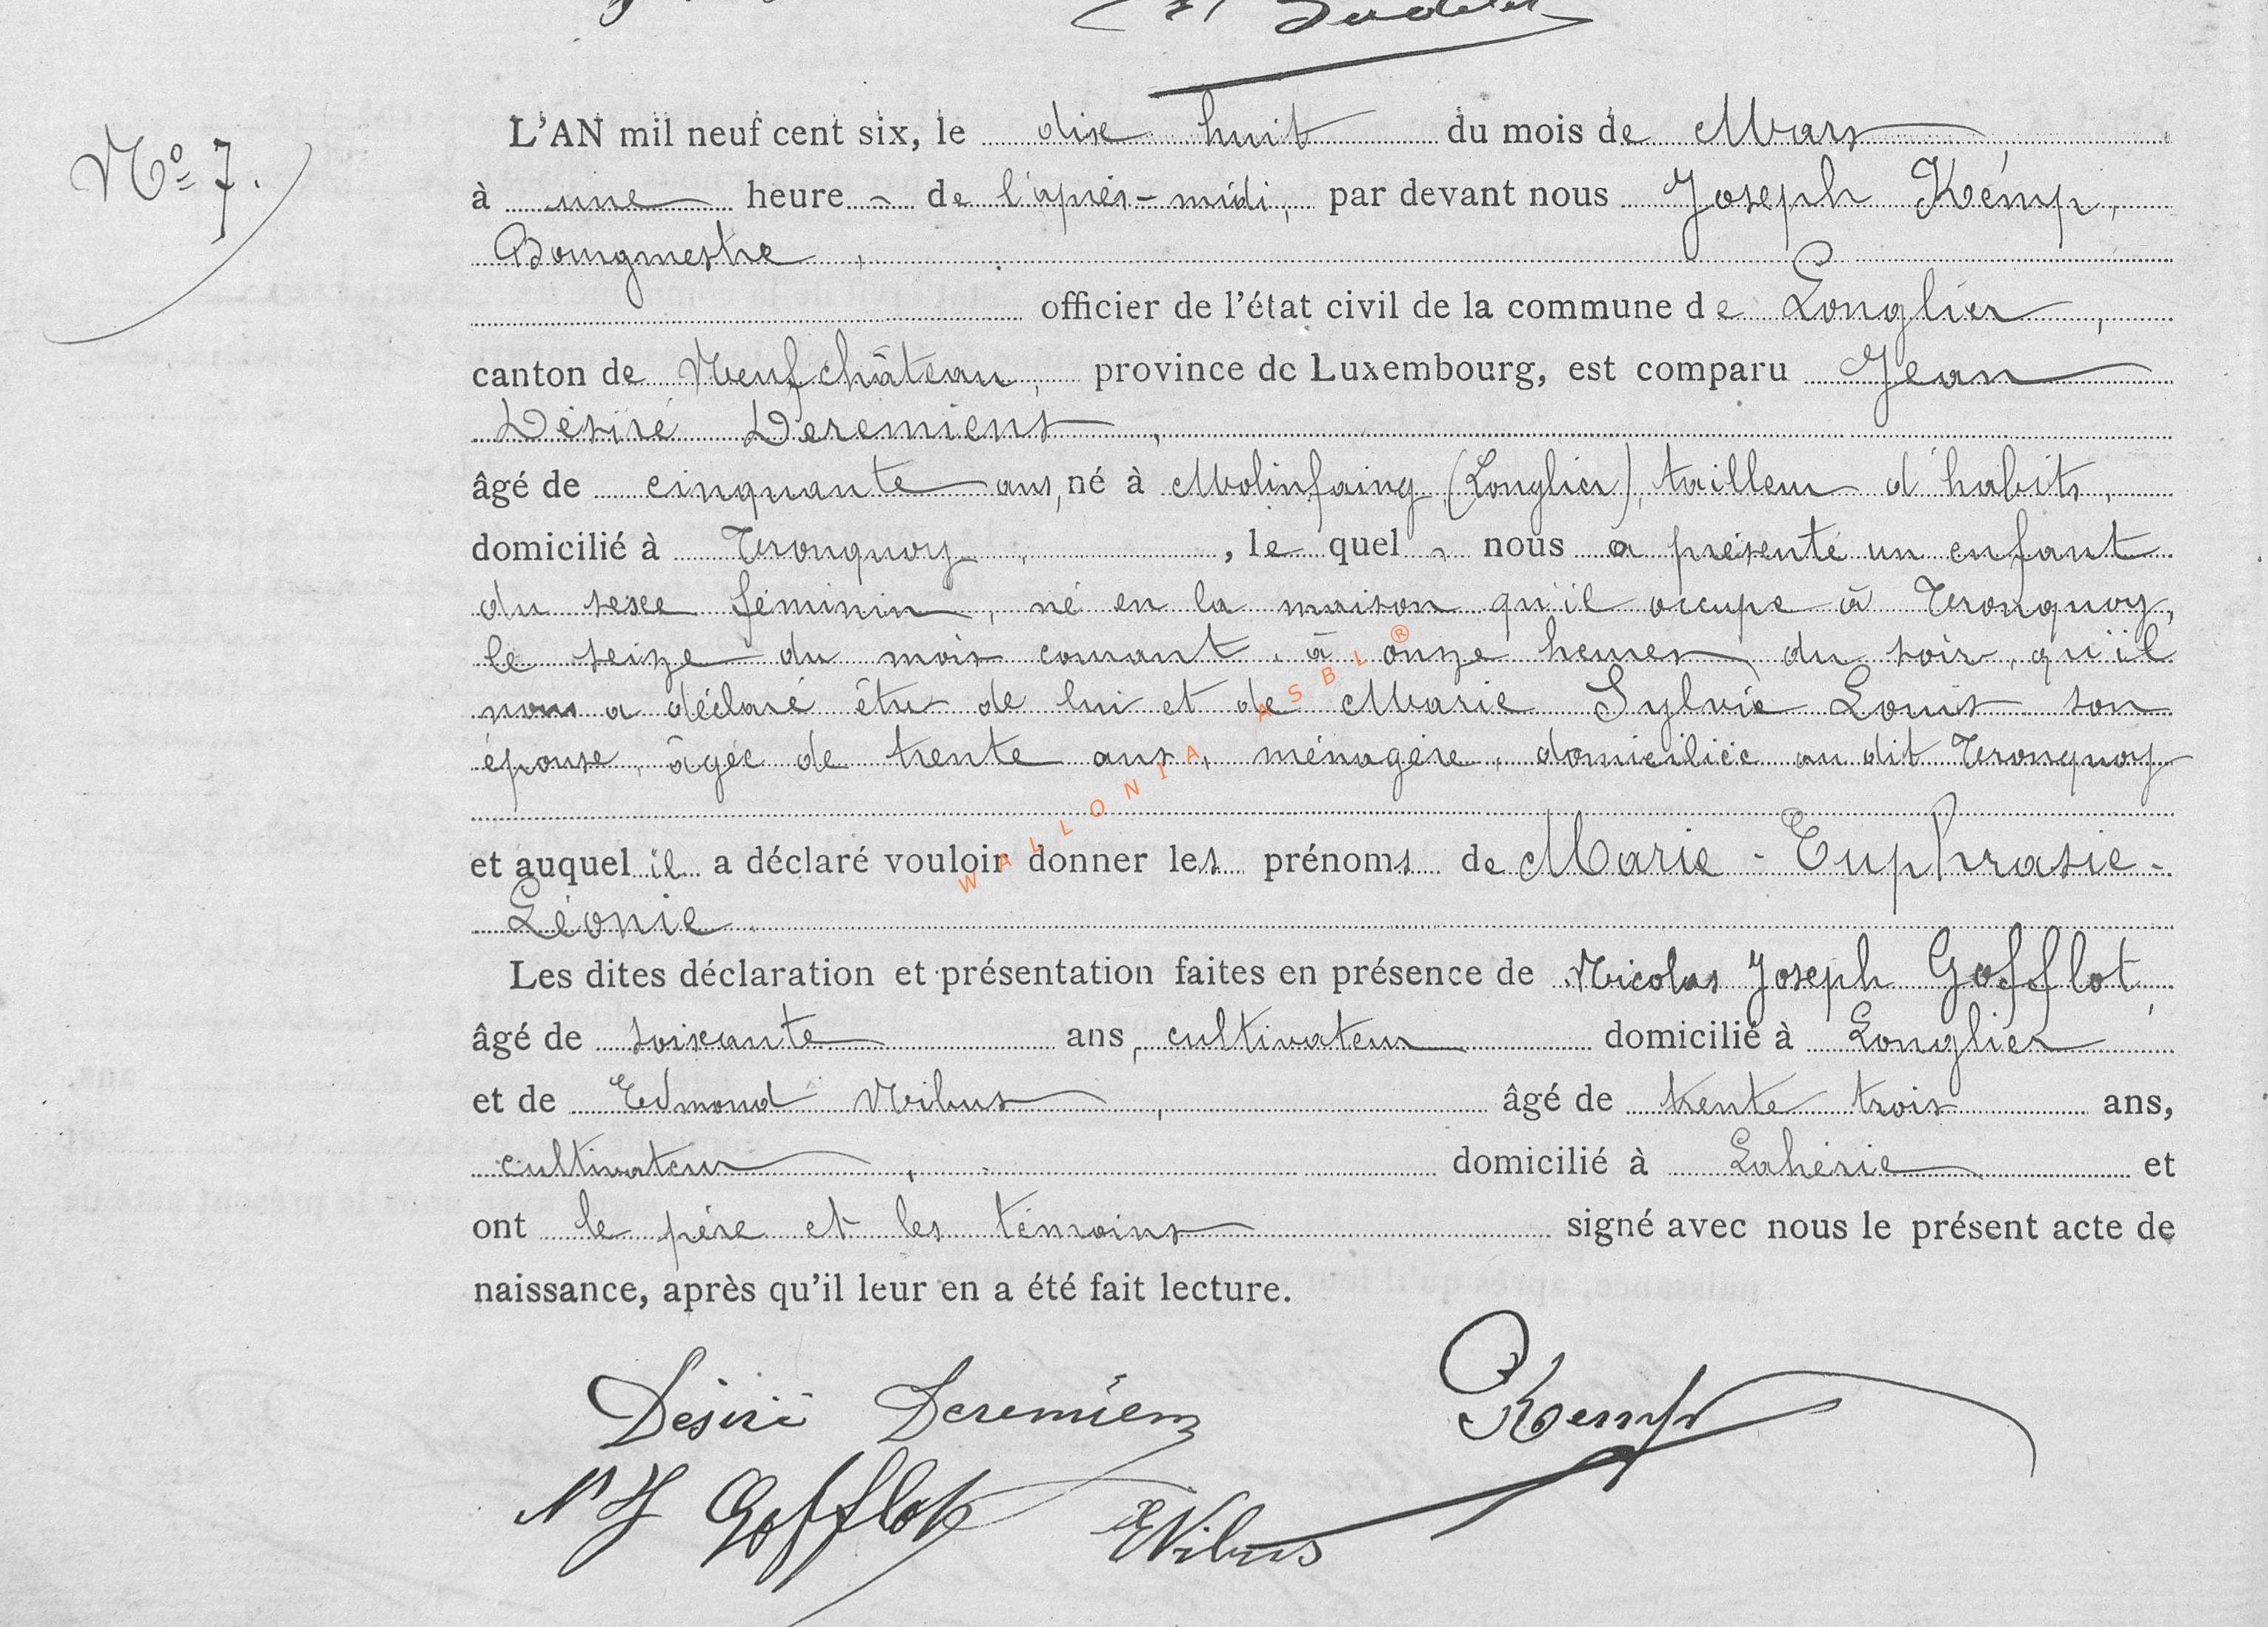 L'AN mil neuf cent six, le dix huit du mois de Mars
Nº 7.
à une heure de l'après-midi, par devant nous Joseph Kemp,
Bourgmestre,
officier de l'état civil de la commune de Longlier,
canton de Neufchâteau, province de Luxembourg, est comparu Jean
Désiré Deremiens,
âgé de cinquante ans, né à Molinfaing (Longlier), tailleur d'habits,
domicilié à Tronquoy, le quel nous a présenté un enfant
du sexe féminin, né en la maison qu'il occupe à Tronquoy,
le seize du mois courant, à onze heures du soir, qu'il
nous a déclaré être de lui et de Marie Sylvie Louis son
épouse, âgée de trente ans, ménagère, domiciliée au dit Tronquoy
et auquel il a déclaré vouloir donner les prénoms de Marie-Euphrasie-
Léonie.
Les dites déclaration et présentation faites en présence de Nicolas Joseph Gofflot,
âgé de soixante ans, cultivateur domicilié à Longlier
et de Edmond Nibus, âgé de trente trois ans,
cultivateur, domicilié à Lahérie et
ont le père et les témoins signé avec nous le présent acte de
naissance, après qu'il leur en a été fait lecture.
Désiré Deremiens Kemp
NJ Gofflot ENibus
WALLONIA ASBL ®